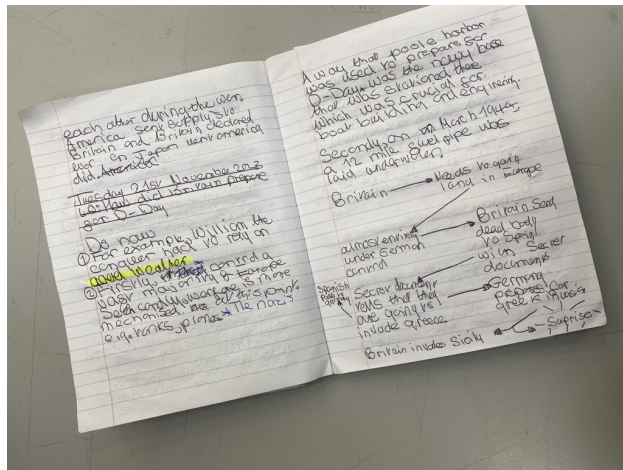 each other during the war.
America sent supply's to
Britain and Britain declared
war on Japan when america
did.
Tuesday 21st November 2023
did Britain prepare
for D-Day
Do now
① For example, William the
conquer had to rely on
good weather
② Firstly, control a
vast majority of Europe
Secondly warfare is more
mechanised, by this point.
e.g. tanks, planes * The nazis
A way that poole harbor
was used to prepare for
D-Day was the navy base
that was stationed there
which was crucial for
boat building and engineering.
Secondly, on March 1944,
a 12 mile fuel pipe was
laid underwater.
Britain
Needs to gain
land in Europe
almost entirely
under German
control
Britain send
dead body
to Spain
with secret
documents
Spanish
Secret document
tells that they
are going to
invade greece.
Germany
prepares for
greek
Britain invades Sicily
- Suprise -